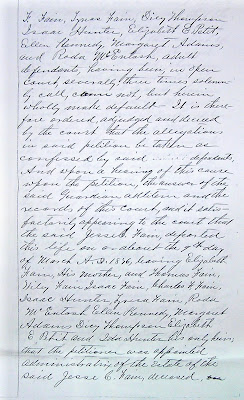 F. Fain, Tyrsa Fain, Dicy Thompson
Isaac Hunter, Elizabeth E Petit,
Ellen Kennedy, Margaret Adams,
and Roda McEntosh, adult
defendants, having been, in open
Court severally three times solemn
ly call, came not, but herein
wholly make default - It is there-
fore ordered, adjudged and decreed
by the court that the allegations
in said petition be taken as
confessed by said ...... defendants,
And upon a hearing of this cause
upon the petition, the answer of the
said Guardian adletem and the
records of this court and it satis-
factorily appearing to the court that
the said Jesse C. Fain, departed
this life on or about the 9th day
of March A.D. 1876, leaving Elizabeth
Fain, His mother, and Thomas Fain,
Wiley Fain Isaac Fain, Charles F Fain,
Isaac Hunter Tyrsa Fain, Roda
McEntosh Ellen Kennedy, Margaret
Adams Dicy Thompson Elizabeth
E Petit and Ida Hunter his only heirs;
that the petitioner was appointed
administrator of the Estate of the
said Jesse C. Fain, deceased